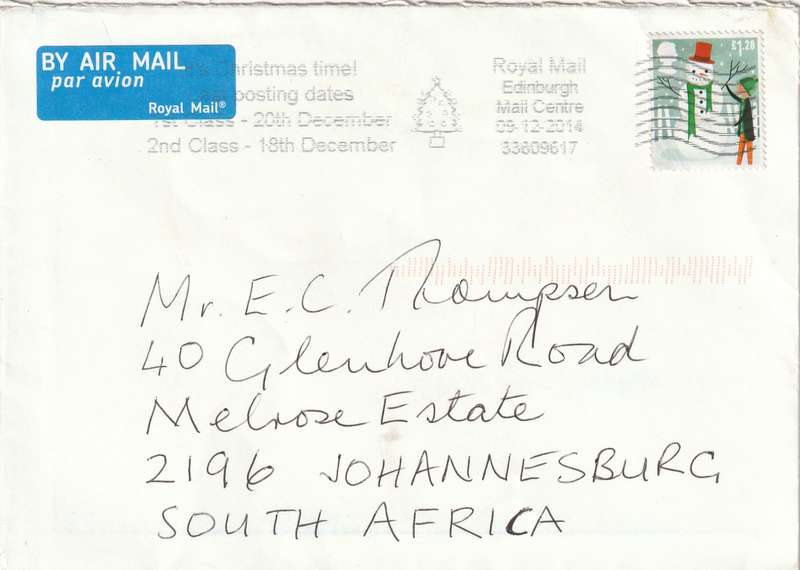 BY AIR MAIL
par avion
Royal Mail®
Christmas time!
posting dates
1st Class - 20th December
2nd Class - 18th December
Royal Mail
Edinburgh
Mail Centre
09-12-2014
33609617
£1.28
Mr. E. C. Thompson
40 Glenhove Road
Melrose Estate
2196 JOHANNESBURG
SOUTH AFRICA